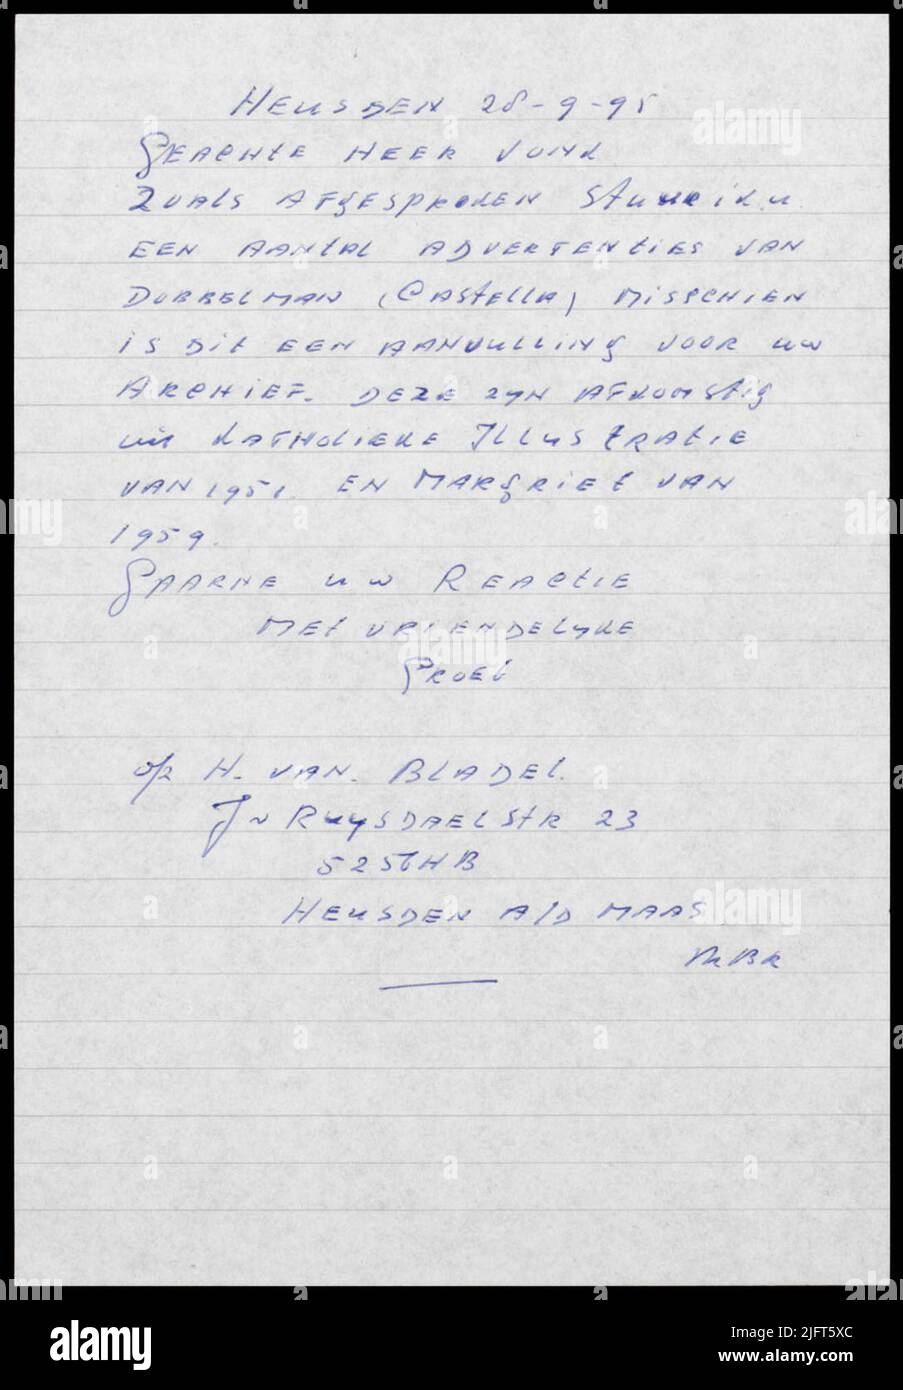 HEUSDEN 28-9-95
GEACHTE HEER VONK
ZOALS AFGESPROKEN STUUR ik u
EEN AANTAL ADVERTENTIES VAN
DOBBELMAN (CASTELLA) MISSCHIEN
is Dit EEN AANVULLING VOOR uw
ARCHIEF. DEZE ZYN AFKOMSTIG
uit KATHOLIEKE ILLUSTRATIE
VAN 1951. EN MARGRIET VAN
1959.
GAARNE uw REACTIE
MET VRIENDELYKE
GROET
H. VAN. BLADEL.
Jv RuysDAELSTR 23
5256HB
HEUSDEN A/D MAAS
alamy
alamy
alamy
alamy
Image ID: 2JFT5XC
www.alamy.com